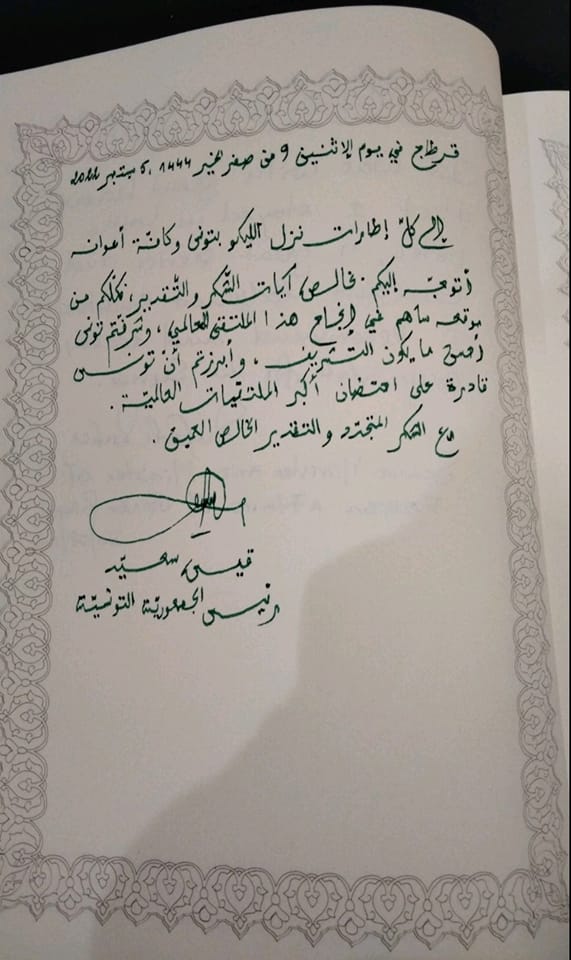 قرطاج في يوم الإثنين 9 من صفر الخير 1444، 5 سبتمبر 2022
إلى كلّ إطارات نزل الليكو بتونس وكافّة أعوانه
أتوجّه إليكم بخالص آيات الشّكر والتّقدير، فكلّكم من
موقعه ساهم في إنجاح هذا الملتقى العالمي، وشرّفتم تونس
أحسن ما يكون التّشريف، وأبرزتم أنّ تونس
قادرة على احتضان أكبر الملتقيات العالميّة.
مع الشّكر المتجدّد والتقدير الخالص العميق.
قيس سعيّد
رئيس الجمهوريّة التونسيّة